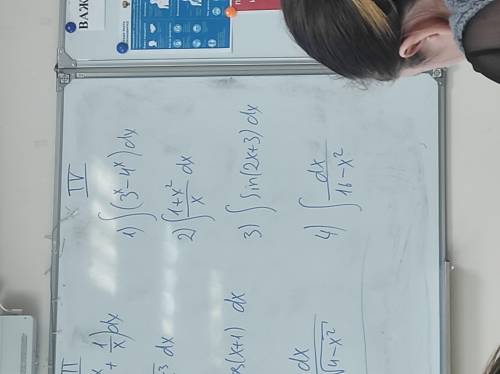 ВАЖ
IV
1) ∫(3^x - 4^x) dx
2) ∫ (1+x^2)/x dx
3) ∫ sin(2x+3) dx
4) ∫ dx/(16-x^2)
+ 1/x) dx
dx
(x+1) dx
dx/√(4-x^2)